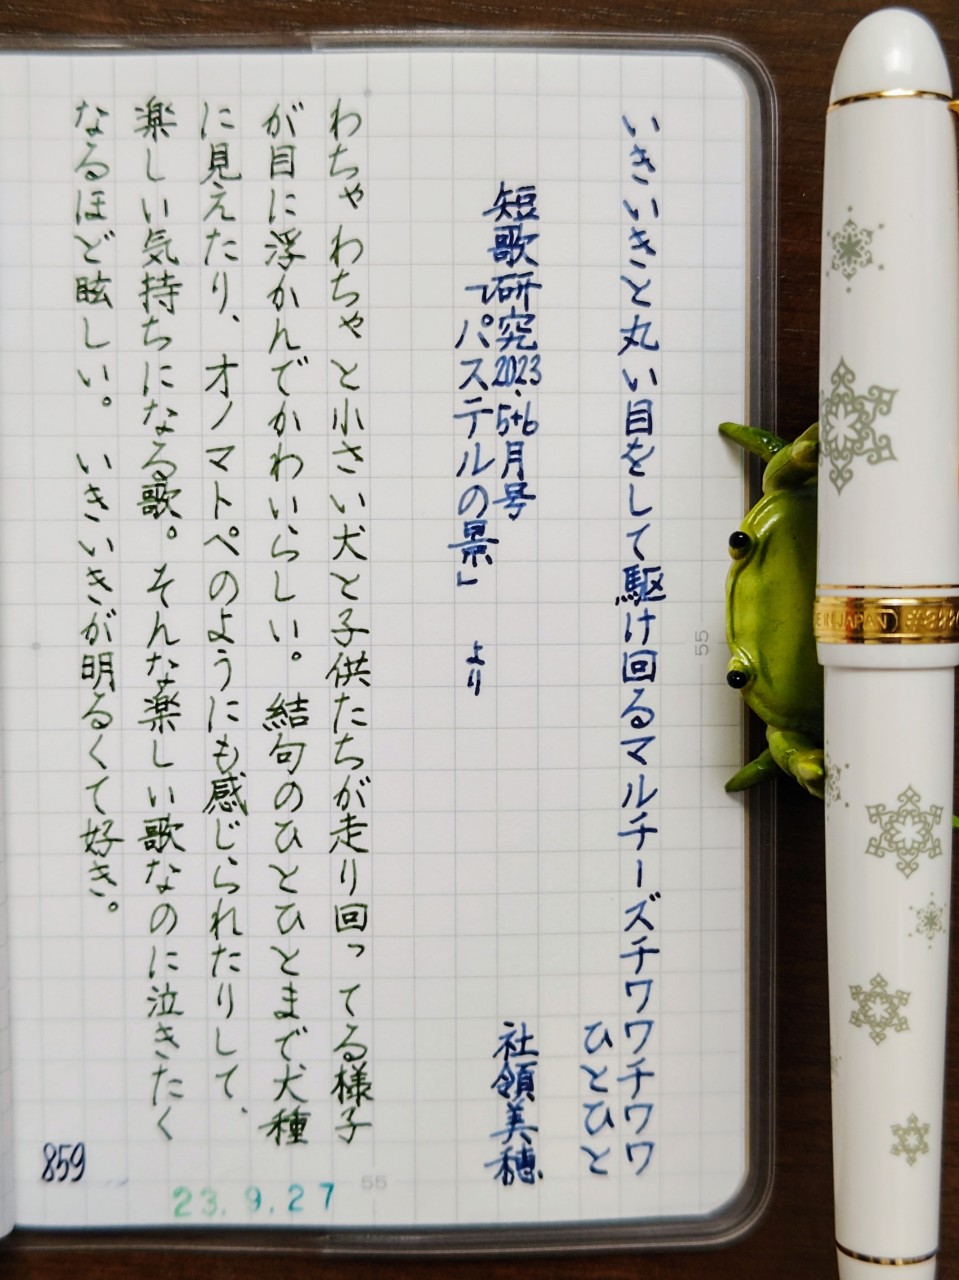 いきいきと丸い目をして駆け回るマルチーズチワワチワワ
ひとひと
短歌研究2023.5+6月号
『パステルの景」 より
社領美穂
わちゃわちゃと小さい犬と子供たちが走り回ってる様子
が目に浮かんでかわいらしい。結句のひとひとまで犬種
に見えたり、オノマトペのようにも感じられたりして、
楽しい気持ちになる歌。そんな楽しい歌なのに泣きたく
なるほど眩しい。いきいきが明るくて好き。
859
23.9.27
55
55
JAPAN